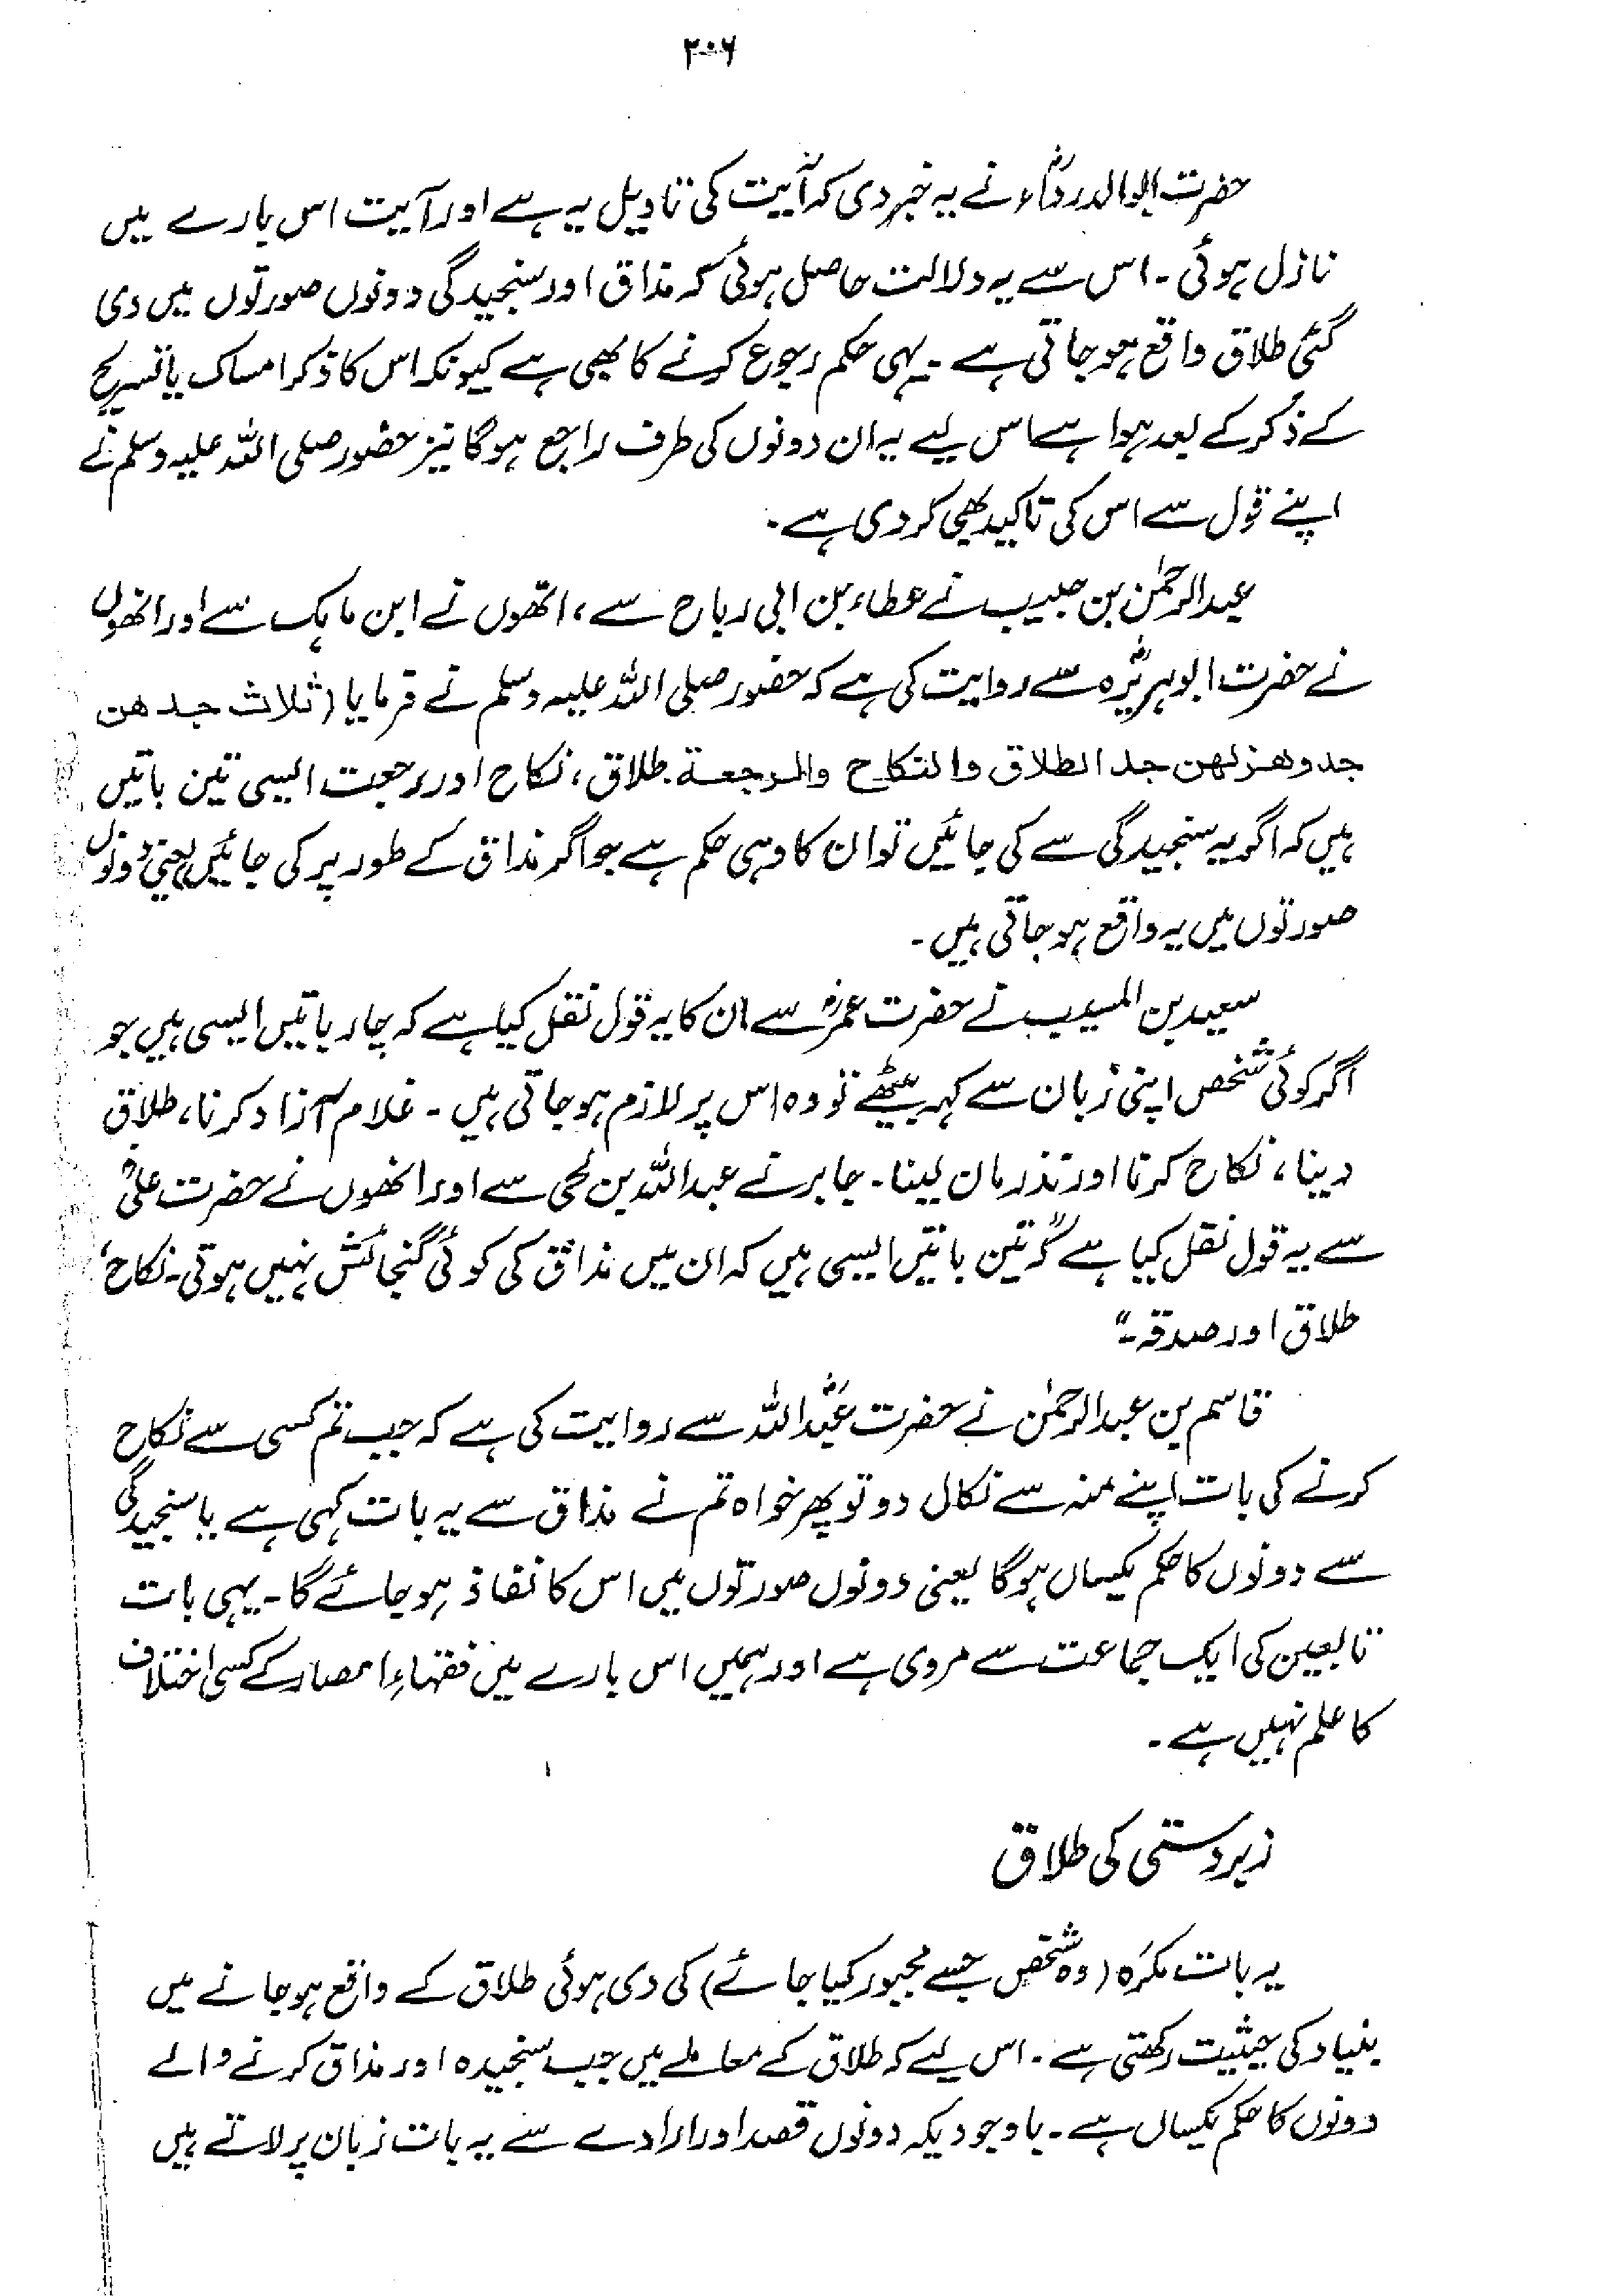 ۲۰۶
حضرت ابوالدرداءؓ نے یہ خبر دی کہ آیت کی تاویل یہ ہے اور آیت اس بارے میں
نازل ہوئی۔ اس سے یہ دلالت حاصل ہوئی کہ مذاق اور سنجیدگی دونوں صورتوں میں دی
گئی طلاق واقع ہو جاتی ہے۔ یہی حکم رجوع کرنے کا بھی ہے کیونکہ اس کا ذکر امساک یا تسریح
کے ذکر کے بعد ہوا ہے اس لیے یہ ان دونوں کی طرف راجع ہوگا نیز حضور صلی اللہ علیہ وسلم نے
اپنے قول سے اس کی تاکید بھی کر دی ہے۔
عبدالرحمٰن بن حبیب نے عطاء بن ابی رباح سے، انھوں نے ابن ماہک سے اور انھوں
نے حضرت ابوہریرہؓ سے روایت کی ہے کہ حضور صلی اللہ علیہ وسلم نے فرمایا (ثلاث جدھن
جد وھزلھن جد الطلاق والنکاح والرجعة۔ طلاق، نکاح اور رجعت ایسی تین باتیں
ہیں کہ اگر یہ سنجیدگی سے کی جائیں تو ان کا وہی حکم ہے جو اگر مذاق کے طور پر کی جائیں یعنی دونوں
صورتوں میں یہ واقع ہو جاتی ہیں۔
سعید بن المسیب نے حضرت عمرؓ سے ان کا یہ قول نقل کیا ہے کہ چار باتیں ایسی ہیں جو
اگر کوئی شخص اپنی زبان سے کہہ بیٹھے تو وہ اس پر لازم ہو جاتی ہیں۔ غلام آزاد کرنا، طلاق
دینا، نکاح کرنا اور نذر مان لینا۔ جابر نے عبداللہ بن لحی سے اور انھوں نے حضرت علیؓ
سے یہ قول نقل کیا ہے کہ "تین باتیں ایسی ہیں کہ ان میں مذاق کی کوئی گنجائش نہیں ہوتی۔ نکاح،
طلاق اور صدقہ۔"
قاسم بن عبدالرحمٰن نے حضرت عبداللہؓ سے روایت کی ہے کہ جب تم کسی سے نکاح
کرنے کی بات اپنے منہ سے نکال دو تو پھر خواہ تم نے مذاق سے یہ بات کہی ہے یا سنجیدگی
سے دونوں کا حکم یکساں ہوگا یعنی دونوں صورتوں میں اس کا نفاذ ہو جائے گا۔ یہی بات
تابعین کی ایک جماعت سے مروی ہے اور ہمیں اس بارے میں فقہاءِ امصار کے کسی اختلاف
کا علم نہیں ہے۔
زبردستی کی طلاق
یہ بات مکرَہ (وہ شخص جسے مجبور کیا جائے) کی دی ہوئی طلاق کے واقع ہو جانے میں
بنیاد کی حیثیت رکھتی ہے۔ اس لیے کہ طلاق کے معاملے میں جب سنجیدہ اور مذاق کرنے والے
دونوں کا حکم یکساں ہے۔ باوجودیکہ دونوں قصد اور ارادے سے یہ بات زبان پر لاتے ہیں